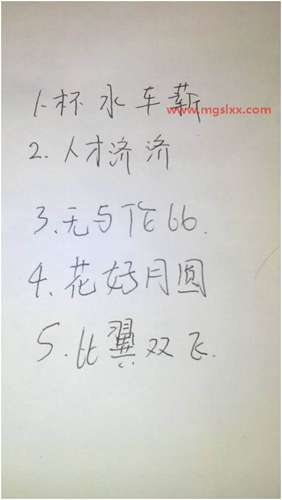 1.杯水车薪
www.mgslxx.com
2.人才济济
3.无与伦比.
4.花好月圆
5.比翼双飞.